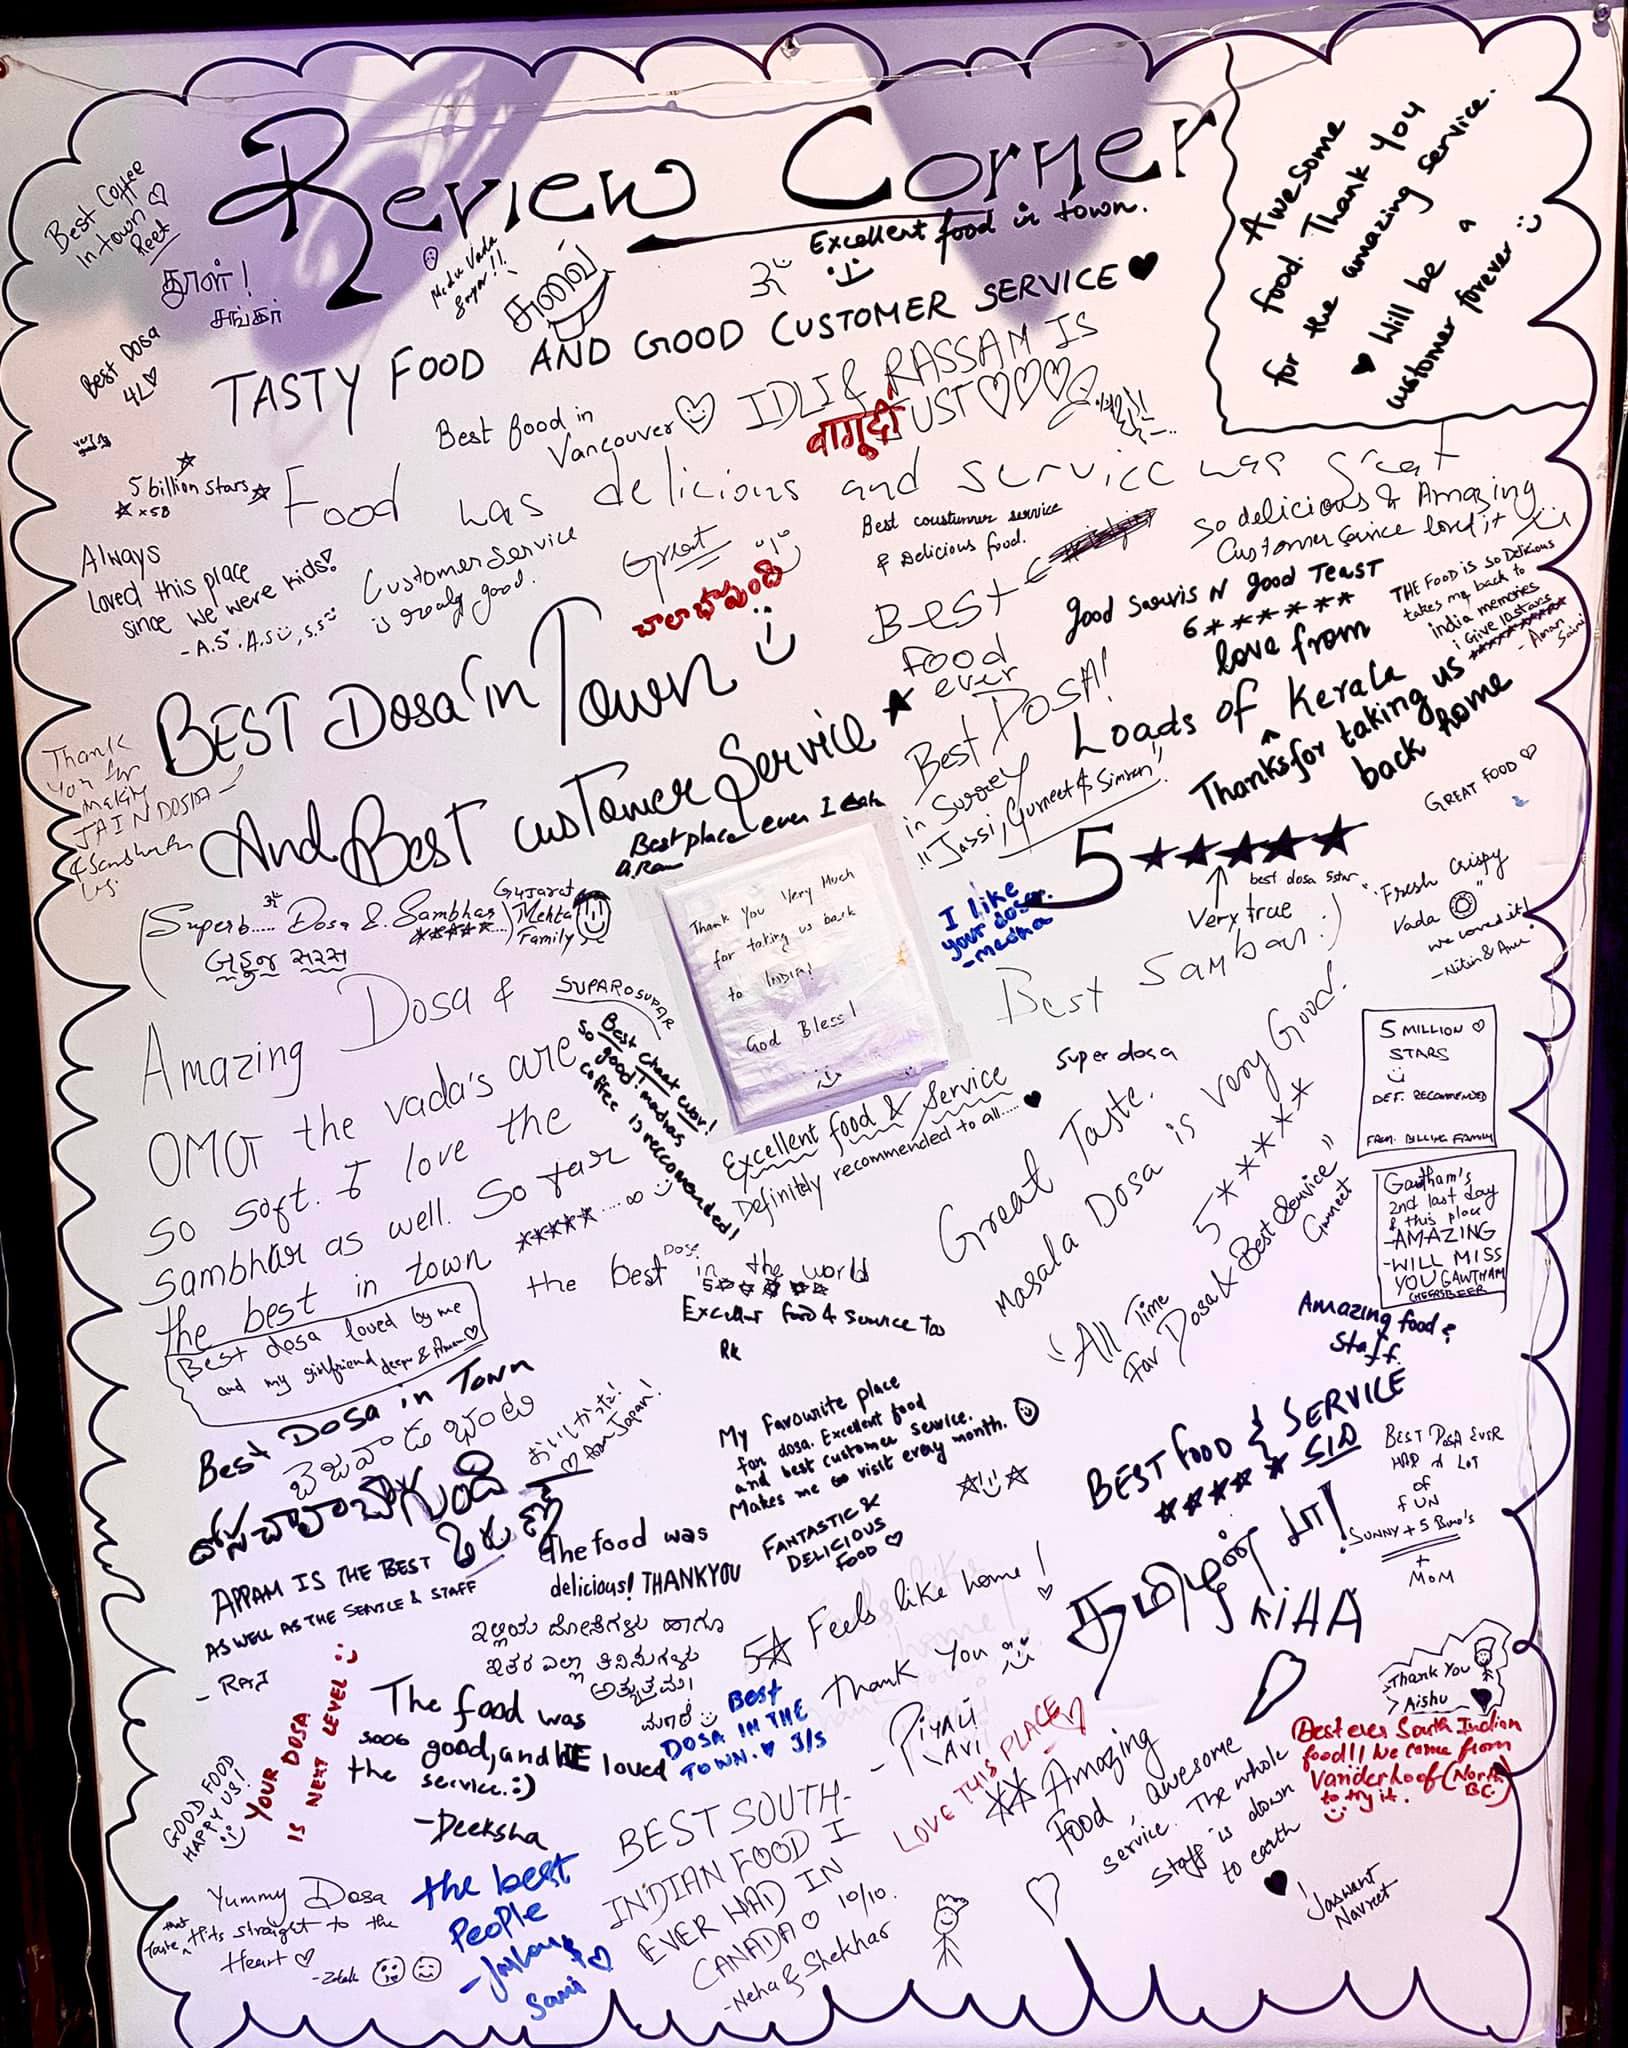 Review Corner
Awesome
food. Thank you
for the amazing service.
♥ Will be a
customer forever
Best Coffee
In town ♡
Reet
தூள்!
சங்கர்
Medu Vada
சுவை
Excellent food in town.
ૐ
TASTY FOOD AND GOOD CUSTOMER SERVICE ♥
Best Dosa
4L ♡
Best food in
Vancouver
IDLI & RASSAM IS
UST ♡♡♡
5 billion stars
x5B
Food was delicious and service was great
Always
loved this place
since we were kids!
- A.S. A.S, S.S
Customer service
is realy good.
Great
చాలా బాగుంది
Best coustumer service
& Delicious food.
Best
Food
ever
So delicious & Amazing
Customer Service loved it
good sarvis N good Teast
6******
love from
Loads of Kerala
Thanks for taking us
back home
THE FOOD is so Delicious
takes me back to
india memories
i Give 10 stars
**********
- Aman
Saini
BEST DOSA in Town
And Best customer Service ★
Best DOSA!
in Surrey
"Jassi, Gurneet & Simran"
Thank
you for
making
JAIN DOSA
Best place ever I eah
GREAT FOOD ♡
5★★★★★
best dosa 5star
Very true
"Fresh crispy
Vada"
we loved it!
- Nitin & Anu
(Superb..... Dosa & Sambhar
*****....)
Gujarat
Mehta
Family
બહુજ સરસ
Thank you Very Much
for taking us back
to INDIA!
God Bless!
I like
your dosa.
- medha
Best Sambar :)
Amazing Dosa &
SUPAROSUPAR
OMG the vada's are
so soft. I love the
sambhar as well. So far
the best in town *****....∞
Best Chaat ever!
so good! madras
coffee is reccomended!
Excellent food & Service
Definitely recommended to all..... ♥
super dosa
Great Taste.
Masala Dosa is very Good.
5*****
"All Time
Fav Dosa & Best Service"
Guneet
5 MILLION ♡
STARS
DEF. RECOMMENDED
FROM. BILLING FAMILY
Gawtham's
2nd last day
& this place
- AMAZING
- WILL MISS
YOU GAWTHAM
CHEERS BEER
the best Dosa in the world
5☆☆☆☆☆
Excellent food & service too
RK
Best dosa loved by me
and my girlfriend
Amazing food &
Staff.
Best Dosa in Town
బెజవాడ
おいしかった!
♡ from Japan!
దోస చాలా బాగుంది
My Favourite place
for dosa. Excellent food
and best customer service.
Makes me to visit every month.
☆☆
BEST FOOD & SERVICE
***** SID
BEST DOSA EVER
HAD A LOT
OF
FUN
SUNNY + 5
+
MOM
APPAM IS THE BEST
AS WELL AS THE SERVICE & STAFF
- RAJ
The food was
delicious! THANKYOU
FANTASTIC &
DELICIOUS
FOOD ♡
தமிழன் டா!
KIHA
ಇಲ್ಲಿಯ ದೋಸೆಗಳು ಹಾಗೂ
ಇತರ ಎಲ್ಲಾ ತಿನಿಸುಗಳು
ಅತ್ಯುತ್ತಮ।
5☆ Feels like home!
Thank You
- PIYALI
AVI
YOUR DOSA
IS NEXT LEVEL
The food was
sooo good, and WE loved
the service. :)
- Deeksha
BEST
DOSA IN THE
TOWN. ♥ J/S
LOVE THIS PLACE ♡
Amazing
Food, awesome
service. The whole
staff is down
to earth
♥
Thank You
Aishu ♥
Best ever South Indian
food!! We came from
Vanderhoof (North
BC.)
to try it.
Jaswant
Navreet
GOOD FOOD
HAPPY US!
Yummy Dosa
that
Taste Hits straight to the
Heart ♡
the best
People
Sami
BEST SOUTH-
INDIAN FOOD I
EVER HAD IN
CANADA ♡ 10/10.
- Neha & Shekhar